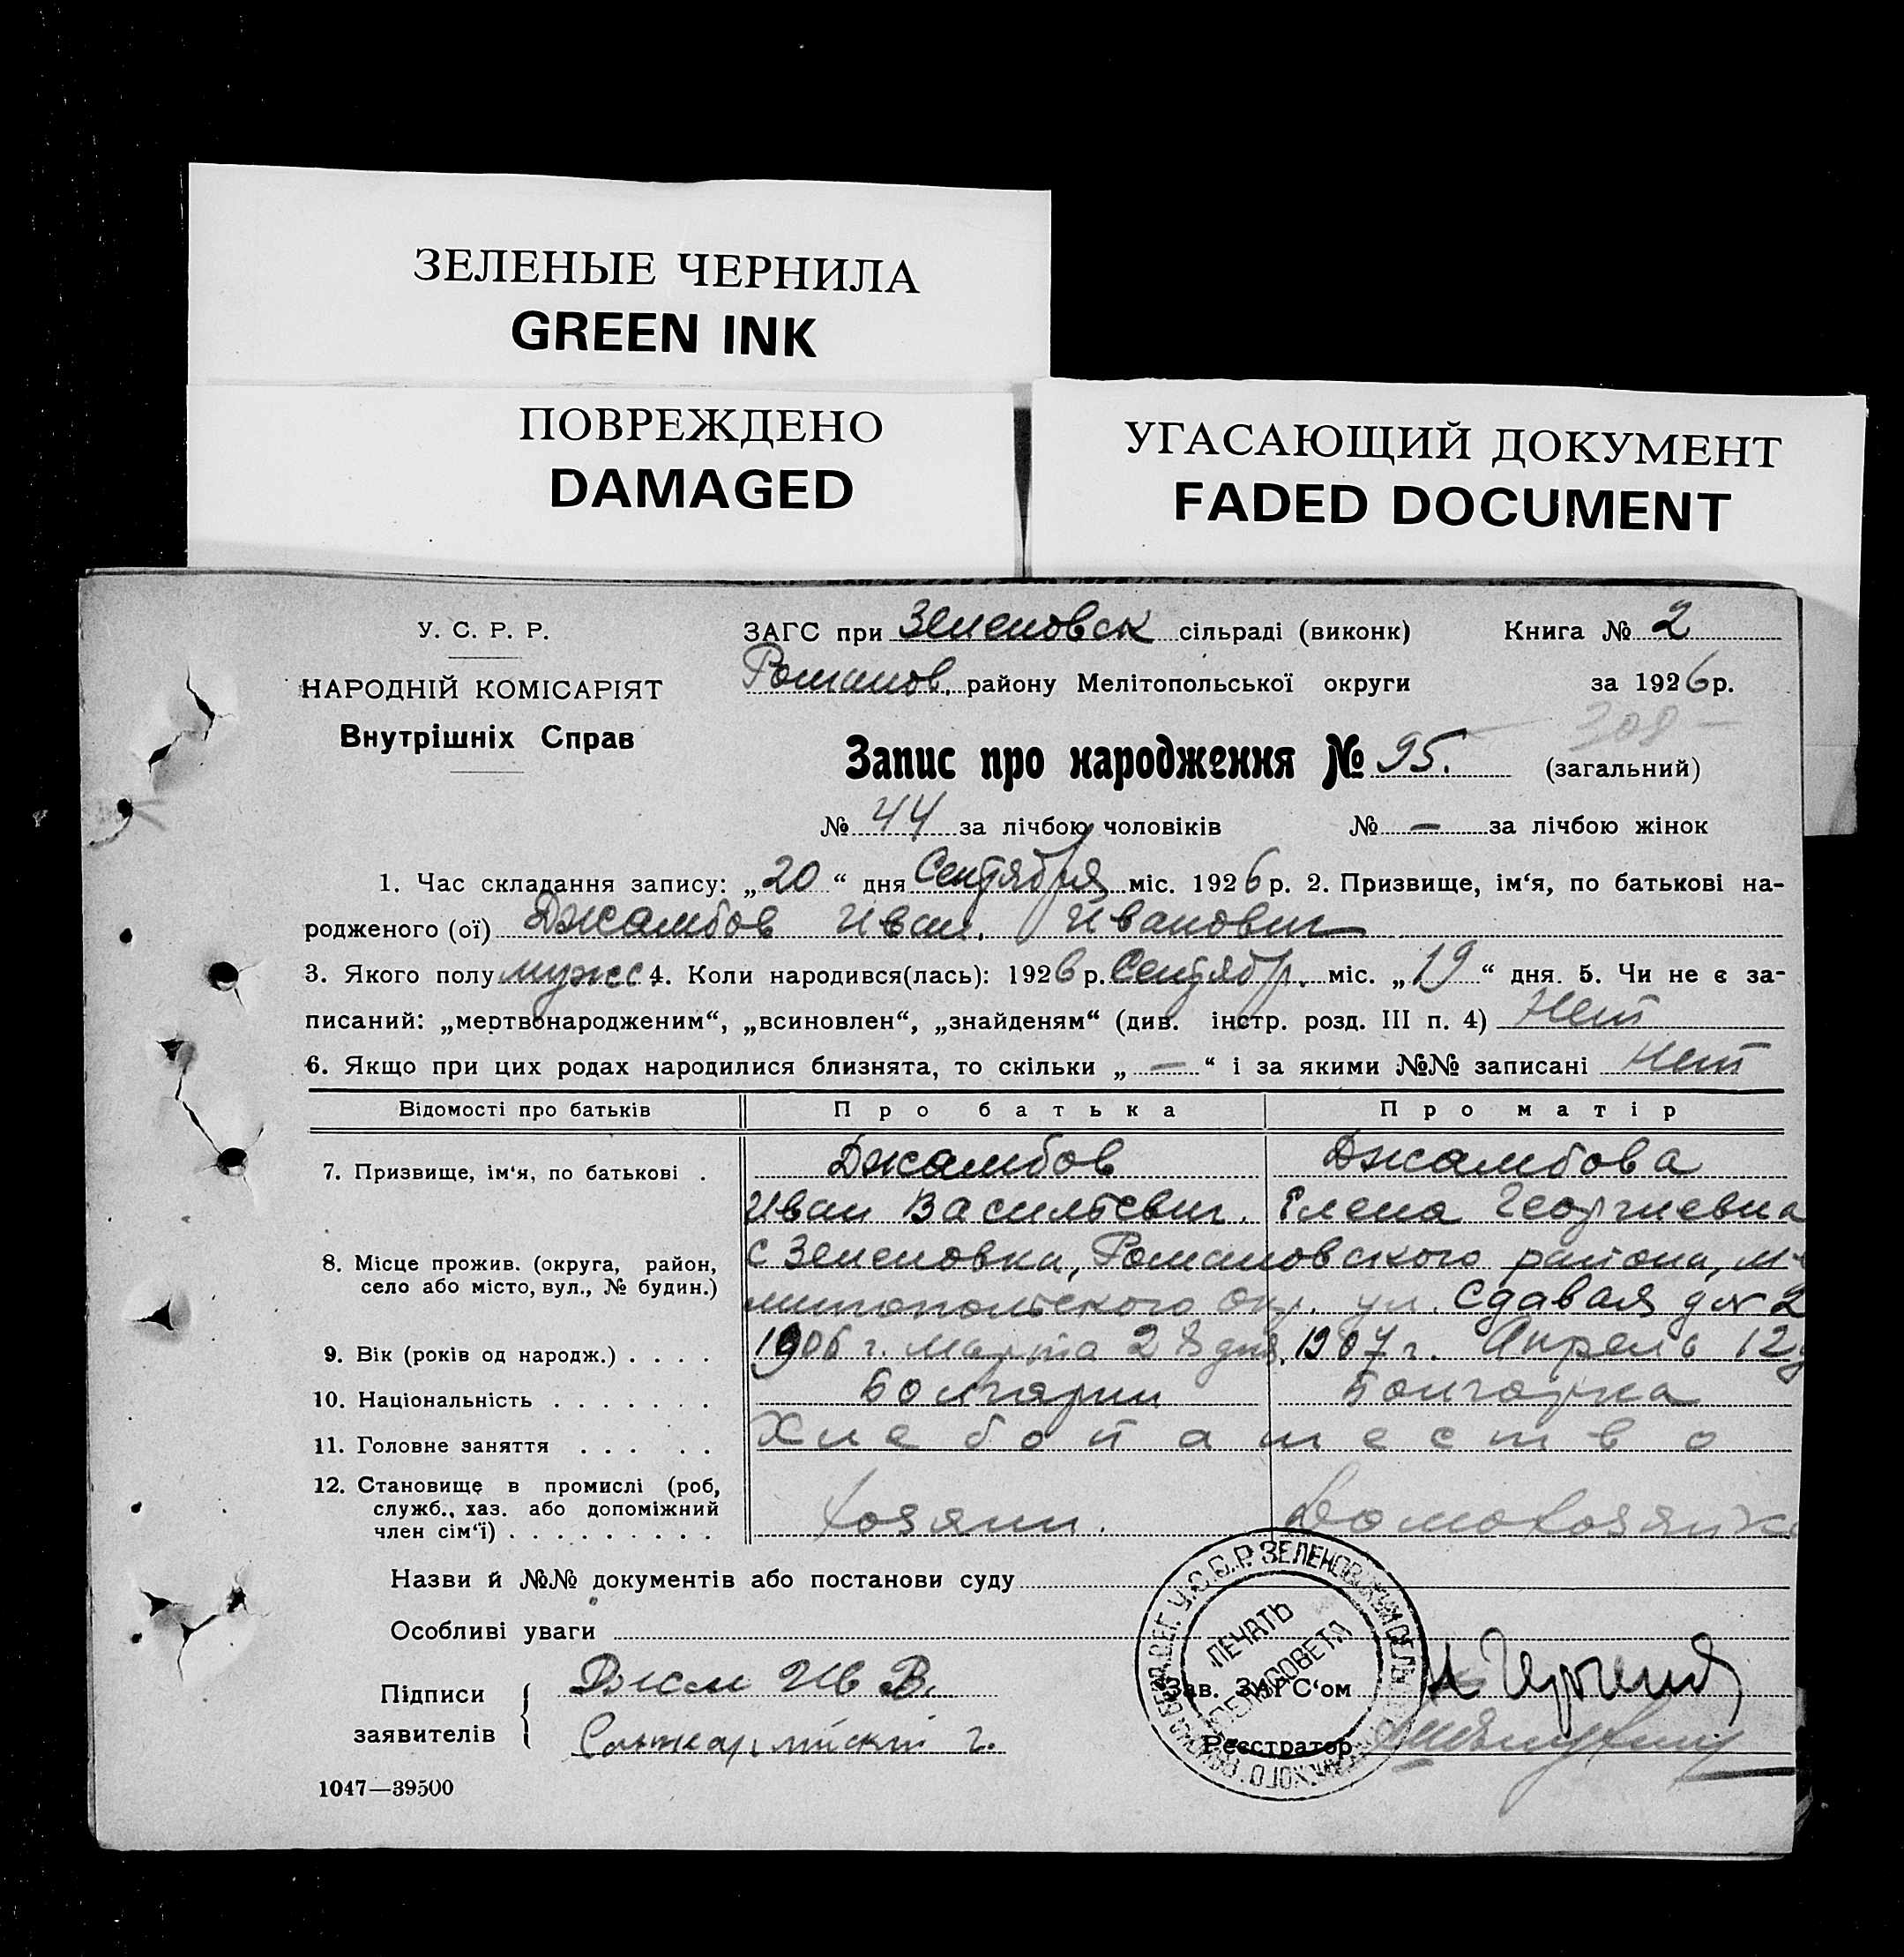 ЗЕЛЕНЫЕ ЧЕРНИЛА
GREEN INK
ПОВРЕЖДЕНО
DAMAGED
УГАСАЮЩИЙ ДОКУМЕНТ
FADED DOCUMENT
У. С. Р. Р.
НАРОДНІЙ КОМІСАРІЯТ
Внутрішніх Справ
ЗАГС при Зеленовск сільраді (виконк) Книга № 2
Романов. району Мелітопольської округи за 1926 р.
308
Запис про народження № 95. (загальний)
№ 44 за лічбою чоловіків № — за лічбою жінок
1. Час складання запису: „20“ дня Сентября міс. 1926 р. 2. Призвище, ім‘я, по батькові на-
родженого (ої) Джамбов Иван. Иванович
3. Якого полу мужс 4. Коли народився(лась): 1926 р. Сентябр. міс. „19“ дня. 5. Чи не є за-
писаний: „мертвонародженим“, „всиновлен“, „знайденям“ (див. інстр. розд. III п. 4) Нет
6. Якщо при цих родах народилися близнята, то скільки „—“ і за якими №№ записані Нет
Відомості про батьків Про батька Про матір
7. Призвище, ім‘я, по батькові . Джамбов Джамбова
Иван Васильевич. Елена Георгиевна
8. Місце прожив. (округа, район, село або місто, вул., № будин.) с Зеленовка, Романовского района, М-
литопольского окр. ул. Сдавая д № 2
9. Вік (років од народж.) . . . . 1906 г. Марта 28 дня, 1907 г. Апрель 12 д
10. Національність . . . . . . . Болгарин Болгарка
11. Головне заняття . . . . . Хлебопашество
12. Становище в промислі (роб, служб., хаз. або допоміжний член сім‘ї) . . . . . . . . . Хозяин. Домохозяйка
Назви й №№ документів або постанови суду
Особливі уваги
Підписи заявителів Джам Ив В.
Зав. ЗАГС‘ом
Реєстратор
ПЕЧАТЬ
СЕЛЬСОВЕТА
1047—39500